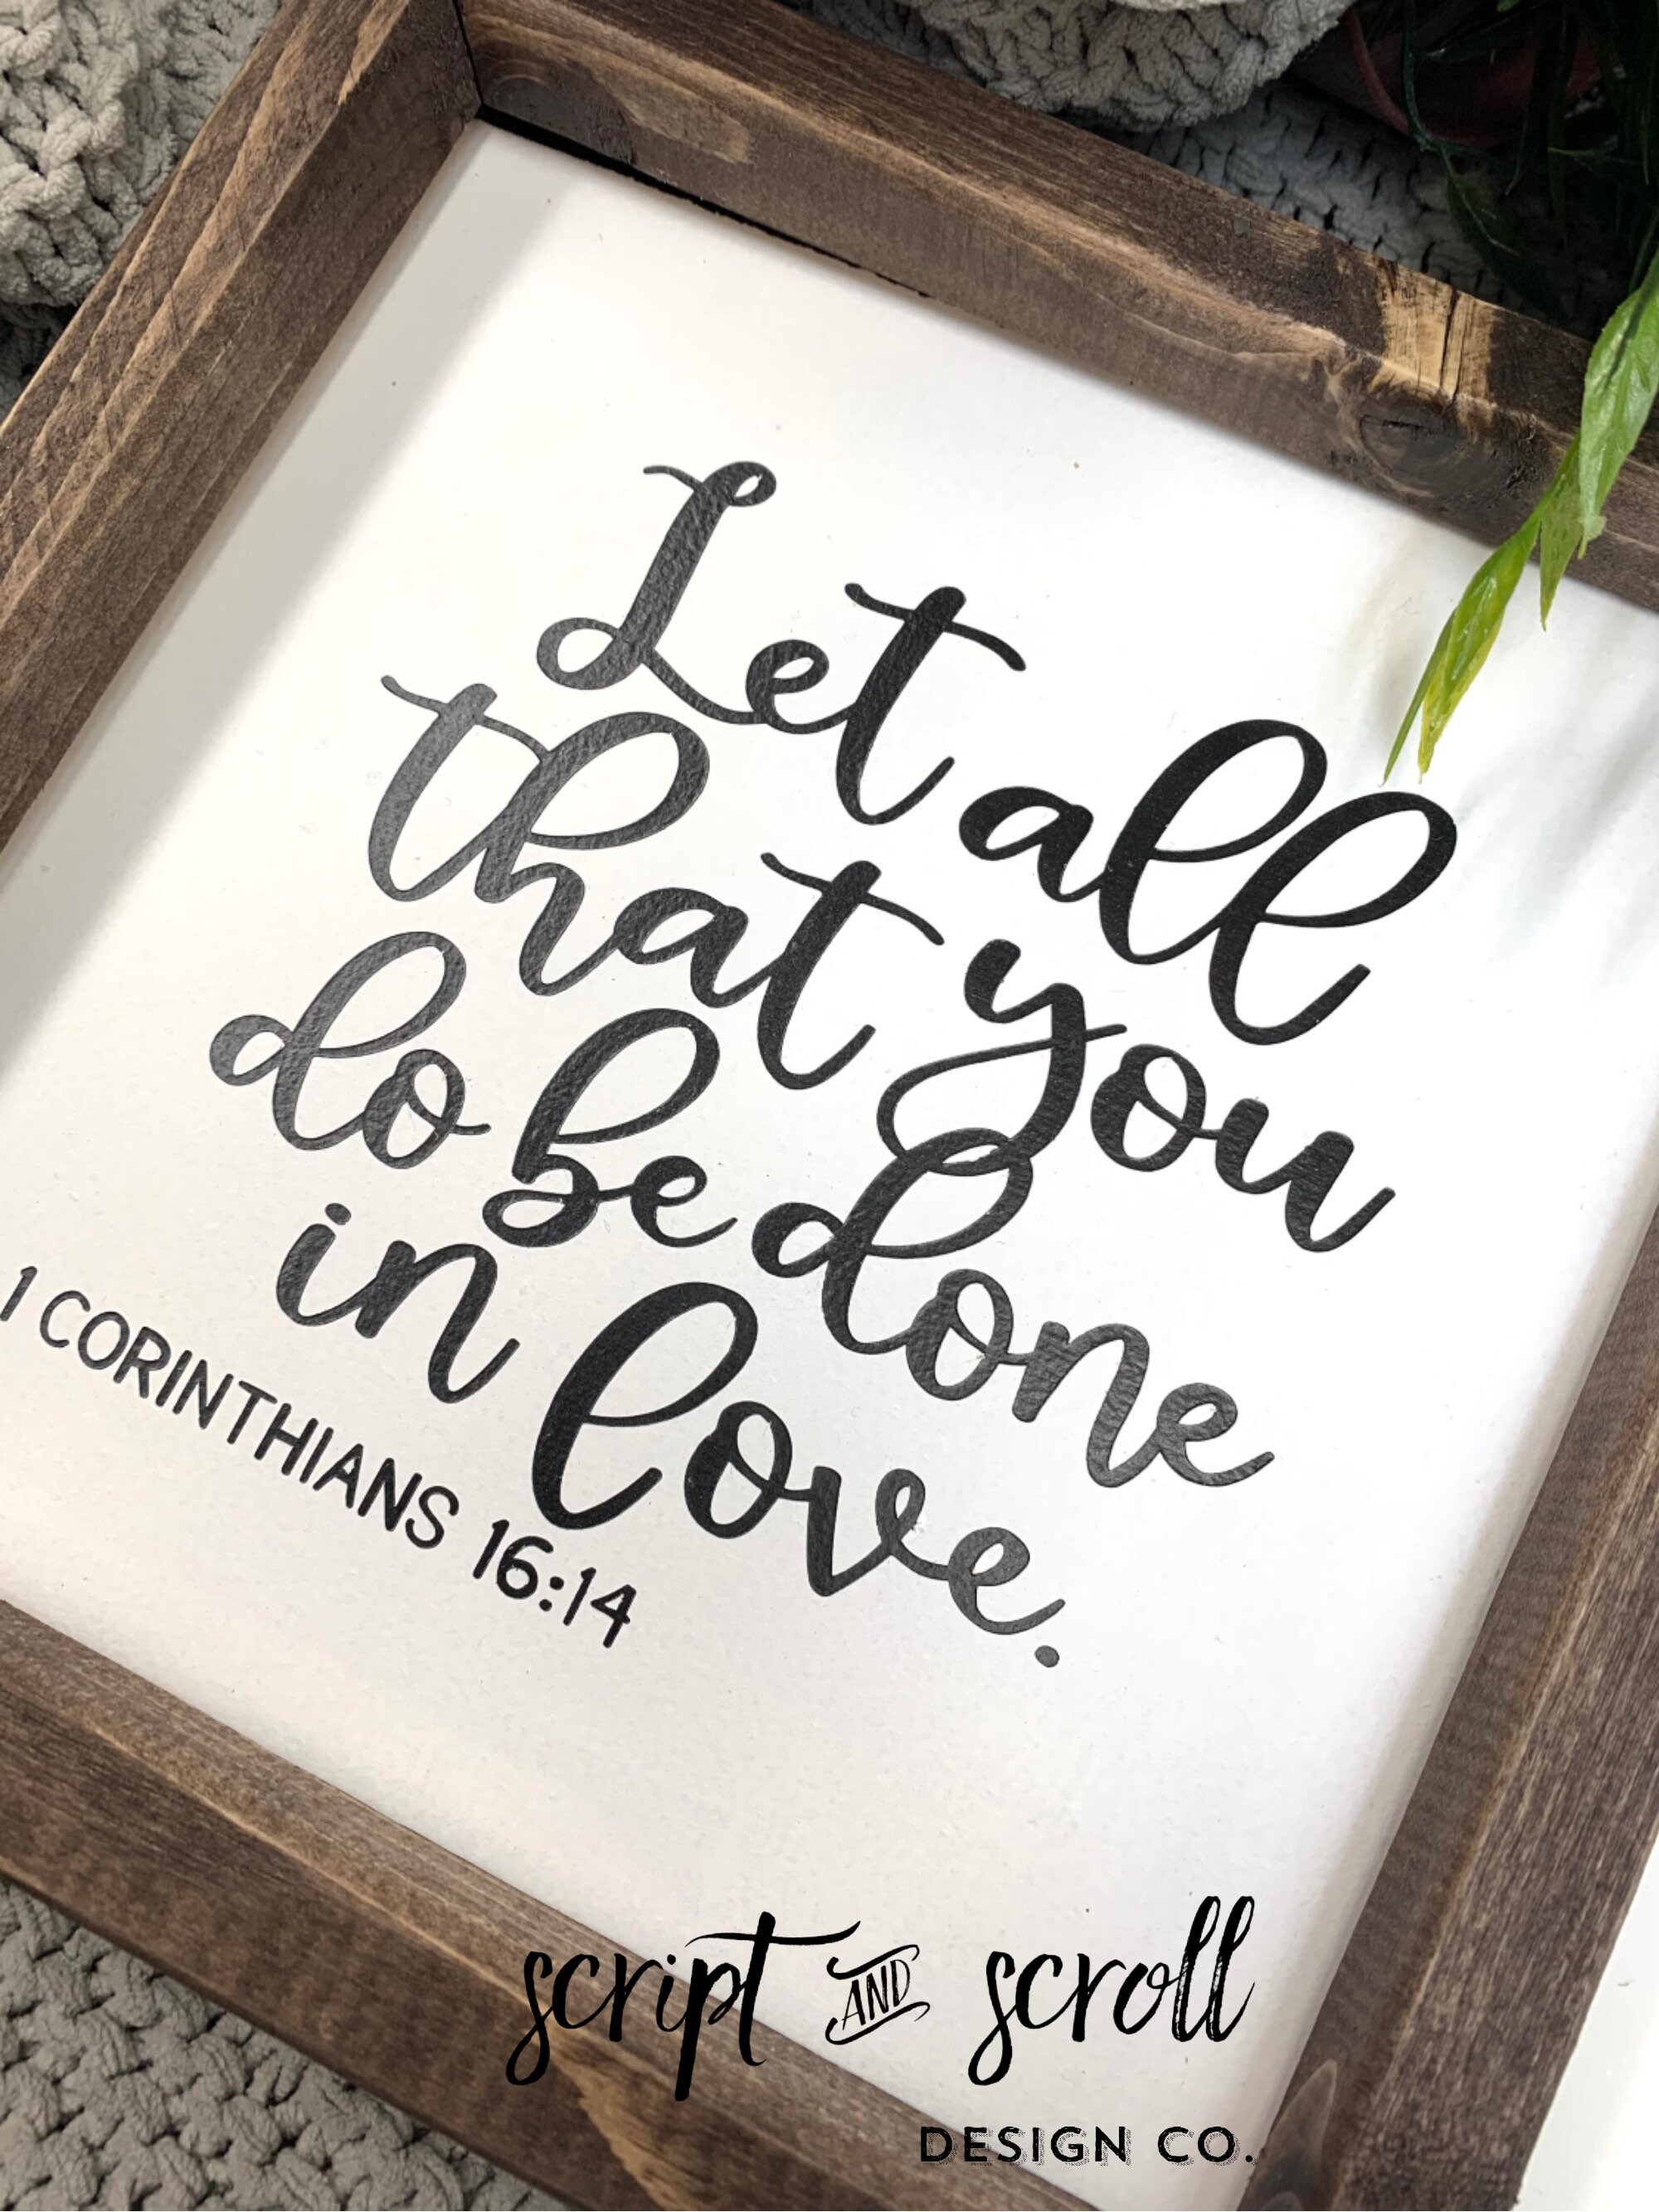 Let all
that you
do be done
in love.
1 CORINTHIANS 16:14
script AND scroll
DESIGN CO.